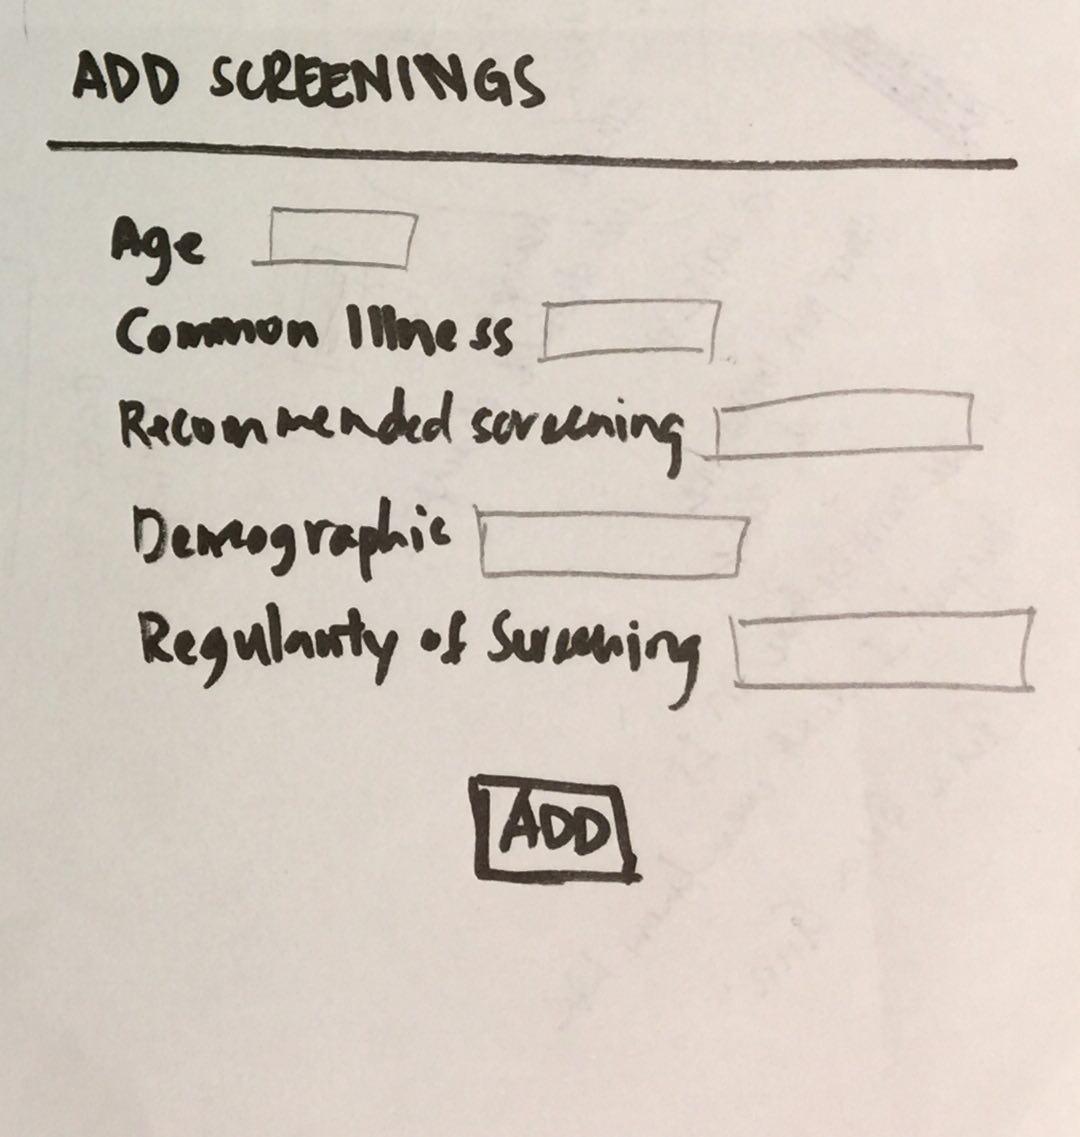 ADD SCREENINGS
Age
Common Illness
Recommended screening
Demographic
Regularity of Screening
ADD